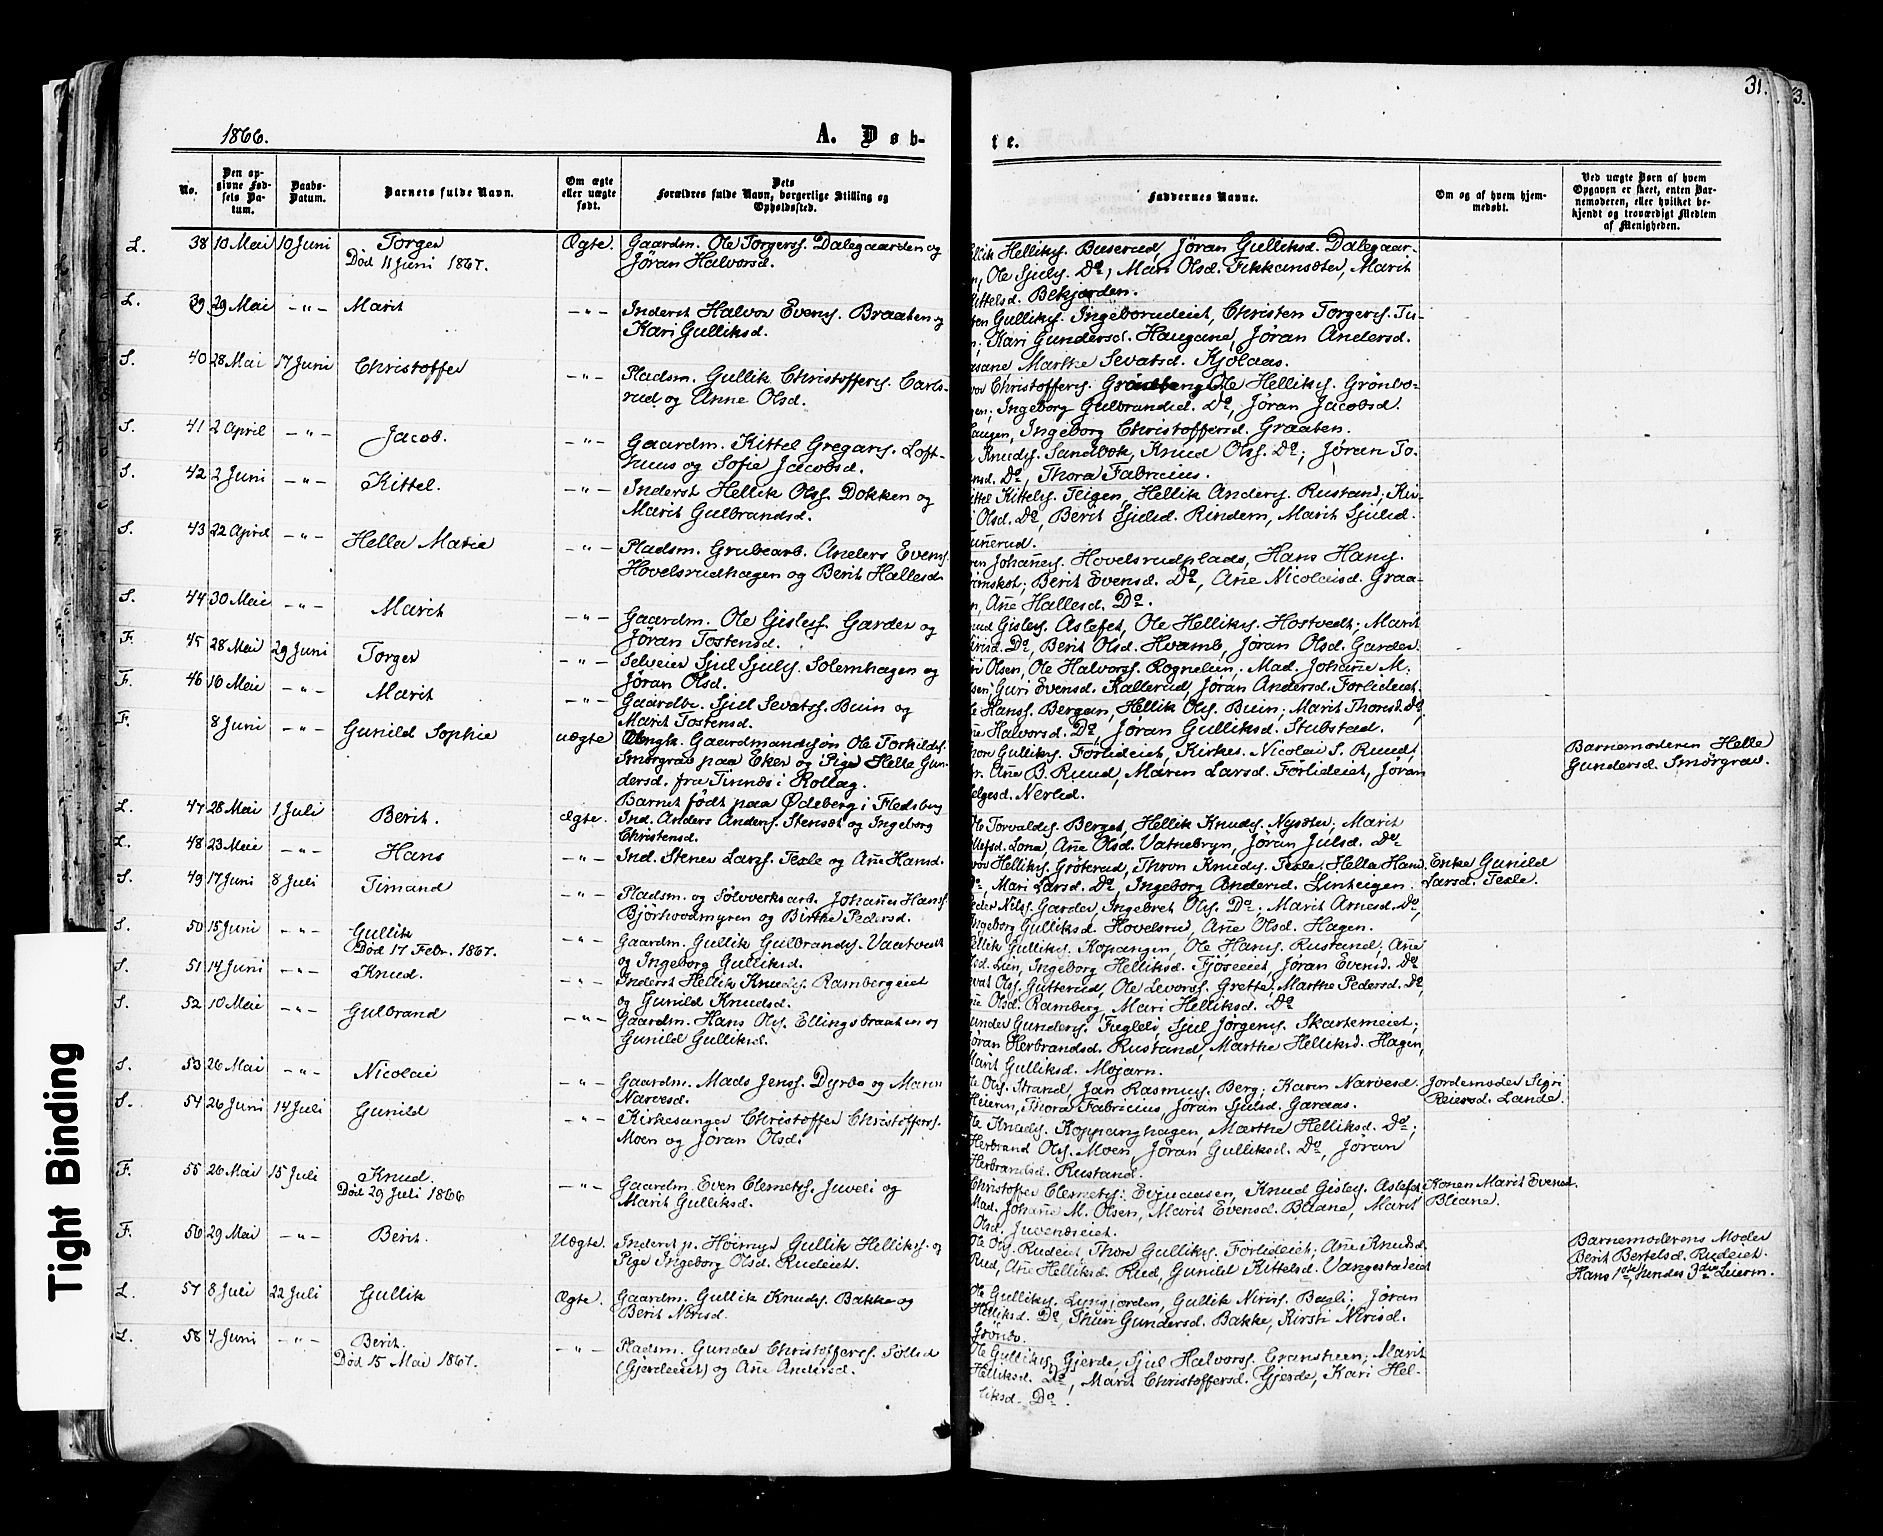 31.
3.
1866.
A. Døb-
te.
No.
Den op-
givne Fød-
sels Da-
tum.
Daabs-
Datum.
Barnets fulde Navn.
Om ægte
eller uægte
født.
Dets
Forældres fulde Navn, borgerlige Stilling og
Opholdssted.
Faddernes Navne.
Om og af hvem hjem-
medøbt.
Ved uægte Børn af hvem
Opgaven er skeet, enten Bar-
nemoderen, eller hvilket be-
kjendt og troværdigt Medlem
af Menigheden.
L. 38 10 Mai 10 Juni Torger Ægte. Gaardm. Ole Torgers. Dalegaarden og
Død 11 Juni 1867. Jøran Halvorsd.
Helliks. Buserud, Jøran Gulliksd. Dalegaar-
Ole Sjuls. Do, Mari Olsd. Fekkansæter, Marit
Kittelsd. Bekjorden.
L. 39 29 Mai -"- Marit -"- Inderst Halvor Evens. Braaten og
Kari Gulliksd.
Gulliks. Ingeborudeiet, Christen Torgers. Tu-
Kari Gundersd. Haugane, Jøran Andersd.
Marthe Sevatsd. Kjølaas.
S. 40 28 Mai 17 Juni Christoffer -"- Pladsm. Gullik Christoffers. Carls-
rud og Anne Olsd.
Christoffers. Ole Helliks. Grønbo-
Ingeborg Gulbrandsd. Do, Jøran Jacobsd.
Haugen, Ingeborg Christoffersd. Graaten.
S. 41 2 April -"- Jacob. -"- Gaardm. Kittel Gregars. Loft-
huus og Sofie Jacobsd.
Knuds. Sandbæk, Knud Ols. Do; Jøran To-
Do, Thora Fabricius.
S. 42 2 Juni -"- Kittel. -"- Inderst Hellik Ols. Dokken og
Marit Gulbrandsd.
Kittels. Teigen, Hellik Anders. Rustand; Ki-
Olsd. Do, Berit Sjulsd. Rindern, Marit Sjulsd.
S. 43 22 April -"- Helle Marie -"- Pladsm. Grubearb. Anders Evens.
Hovelsrudhagen og Berit Hallesd.
Johannes. Hovelsrudplads, Hans Hans.
Berit Evensd. Do, Ane Nicolaisd. Graa-
Ane Hallesd. Do.
S. 44 30 Mai -"- Marit -"- Gaardm. Ole Gisles. Garder og
Jøran Tostensd.
Gisles. Aslefet, Ole Helliks. Hostvedt; Marit
Do, Berit Olsd. Hvamb, Jøran Olsd. Garder.
F. 45 28 Mai 29 Juni Torger -"- Selveier Sjul Sjuls. Solemhagen og
Jøran Olsd.
Olsen, Ole Halvors. Rognelien; Mad. Johane M.
Guri Evensd. Kallerud, Jøran Andersd. Forlideiet.
F. 46 10 Mai -"- Marit -"- Gaardbr. Sjul Sevats. Buin og
Marit Tostensd.
Hans. Bergan, Hellik Ols. Buin; Marit Thorsd. Do,
Halvorsd. Do, Jøran Gulliksd. Stubstad.
F. 8 Juni -"- Gunild Sophie uægte Ungk. Gaardmandssøn Ole Torkilds.
Smørgrav paa Eker og Pige Helle Gun-
dersd. fra Tinnæs i Rollag.
Barnet født paa Ødeberg i Flesberg
Gulliks. Forlideiet, Kirkes. Nicolai S. Ruud,
Ane B. Ruud, Maren Larsd. Forlideiet, Jøran
Helgesd. Nerlid.
Barnemoderen Helle
Gundersd. Smørgrav.
L. 47 28 Mai 1 Juli Berit. Ægte. Ind. Anders Anders. Stensæt og Ingeborg
Christensd.
Ole Torvalds. Berget, Hellik Knuds. Nysæter; Marit
Lona, Ane Olsd. Vatnebryn, Jøran Julsd. Do
L. 48 23 Mai -"- Hans -"- Ind. Stener Lars. Texle og Ane Hansd.
Helliks. Grøterud, Thron Knuds. Texle, Helle Hansd.
Do, Mari Larsd. Do, Ingeborg Andersd. Linteigen.
Enke Gunild
Larsd. Texle.
S. 49 17 Juni 8 Juli Timand -"- Pladsm. og Sølvverksarb. Johannes Hans.
Bjørhovdmyren og Birthe Pedersd.
Peder Nils. Garder, Ingebret Ols. Do; Marit Arnesd. Do,
Ingeborg Gulliksd. Hovelsrud, Ane Olsd. Hagen.
S. 50 15 Juni -"- Gullik -"- Gaardm. Gullik Gulbrands. Vaatvedt
Død 17 Febr. 1867. og Ingeborg Gulliksd.
Gulliks. Kopangen, Ole Hans. Rustand; Ane
Olsd. Lien, Ingeborg Helliksd. Fjøseeiet, Jøran Evensd. Do
S. 51 14 Juni -"- Knud. -"- Inderst Hellik Knuds. Rambergeiet
og Gunild Knudsd.
Ols. Gutterud, Ole Levors. Grette; Marthe Pedersd. Do,
Ane Olsd. Ramberg, Mari Helliksd. Do
S. 52 10 Mai -"- Gulbrand -"- Gaardm. Hans Ols. Ellingsbraaten og
Gunild Gulliksd.
Gunder Gunders. Fugleli, Sjul Jørgens. Skartemeiet;
Jøran Herbrandsd. Rustand, Marthe Helliksd. Hagen,
Marit Gulliksd. Mojarn.
S. 53 26 Mai -"- Nicolai -"- Gaardm. Mads Jens. Dyrbo og Maren
Narvesd.
Ole Ols. Strand, Jan Rasmus. Berg; Karen Narvesd.
Heieren, Thora Fabricius, Jøran Sjulsd. Garaas.
Jordemoder Sigri
Reiersd. Lande.
S. 54 26 Juni 14 Juli Gunild -"- Kirkesanger Christoffer Christoffers.
Moen og Jøran Olsd.
Ole Knuds. Koppanghagen, Marthe Helliksd. Do;
Herbrand Ols. Moen, Jøran Gulliksd. Do, Jøran
Herbrandsd. Rustand.
F. 55 26 Mai 15 Juli Knud. -"- Gaardm. Even Clemets. Juveli og
Død 29 Juli 1866 Marit Gulliksd.
Christoffer Clemets. Evjuaasen, Knud Gisles. Aslefet
Mad. Johane M. Olsen, Marit Evensd. Blaane, Marit
Olsd. Juvenæseiet.
Konen Marit Evensd.
Bliane.
F. 56 29 Mai -"- Berit. Uægte. Inderst p. Høimyr Gullik Helliks. og
Pige Ingeborg Olsd. Rudeiet.
Ole Ols. Rudeiet, Thore Gulliks. Forlideiet; Ane Knudsd.
Rud, Ane Helliksd. Rud, Gunild Kittelsd. Vangestadeiet
Barnemoderens Moder
Berit Bertelsd. Rudeiet.
Hans 1ste, hendes 3die Leierm.
L. 57 8 Juli 22 Juli Gullik Ægte. Gaardm. Gullik Knuds. Bakke og
Berit Nerisd.
Ole Gulliks. Lysgjorden, Gullik Neris. Bagli; Jøran
Helliksd. Do, Thuri Gundersd. Bakke, Kirsti Nerisd.
Grønbo.
L. 58 4 Juni -"- Berit. -"- Pladsm. Gunder Christoffers. Sølled
Død 15 Mai 1867. (Gjerdeeiet) og Ane Andersd.
Ole Gulliks. Gjerde, Sjul Halvors. Transteen; Marit
Helliksd. Do, Marit Christoffersd. Gjerde, Kari Hel-
liksd. Do.
Tight Binding